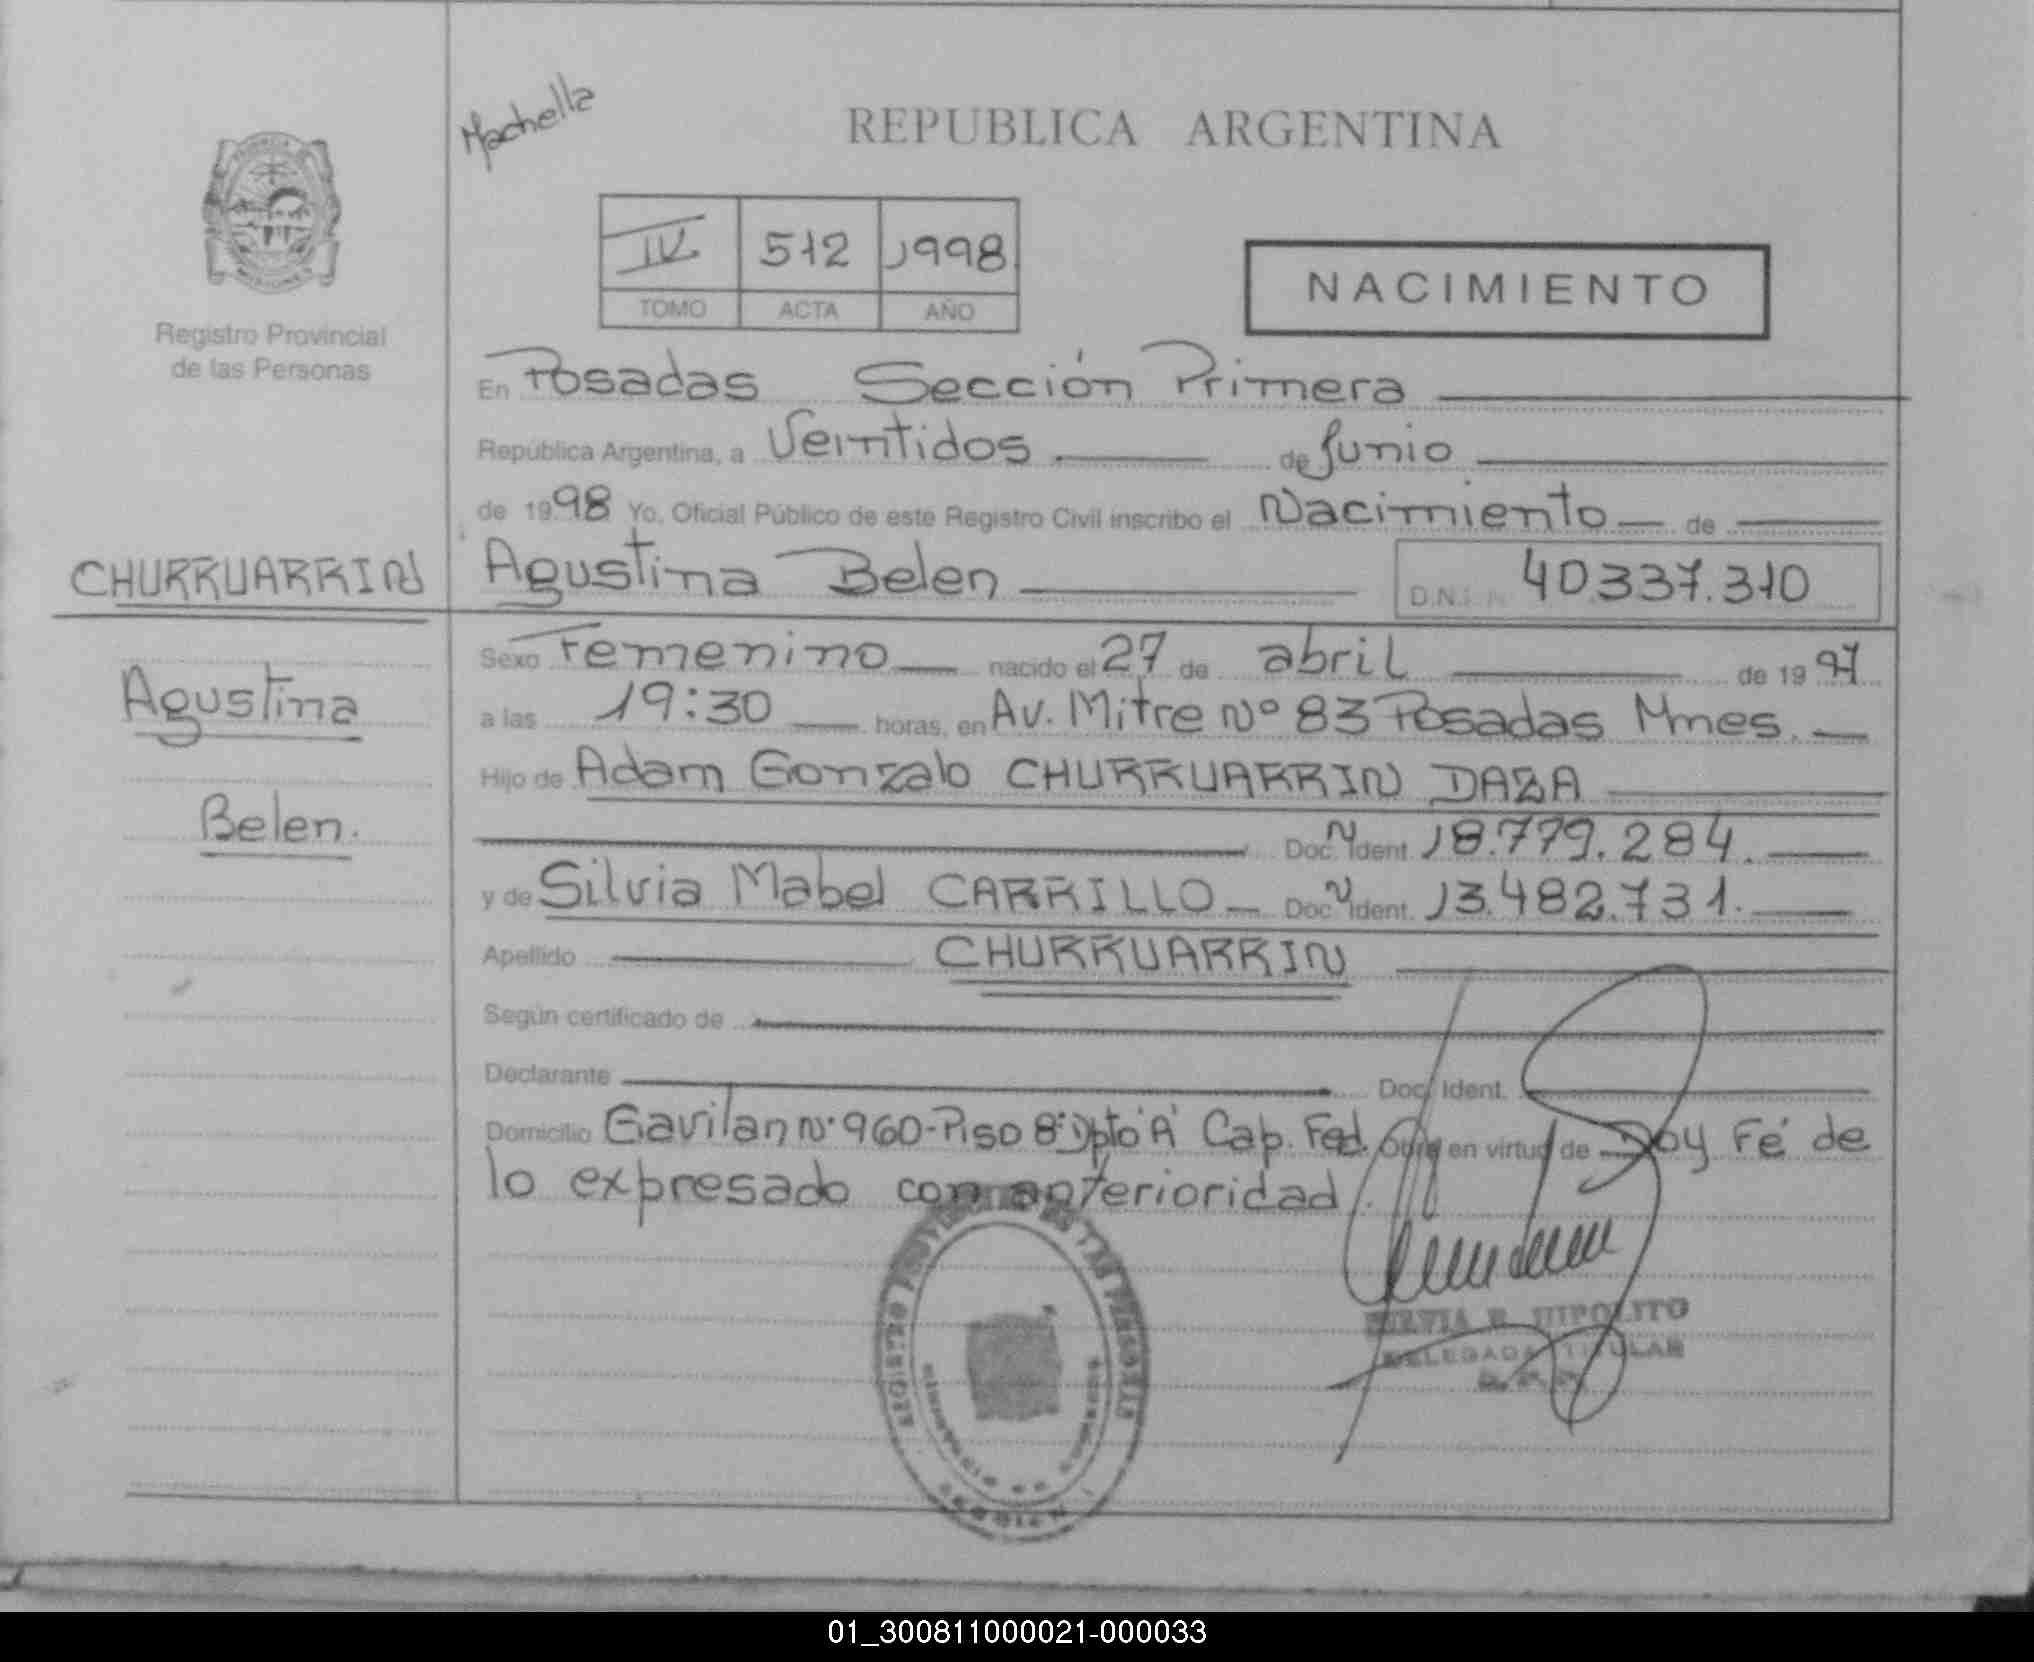 Machella
REPUBLICA ARGENTINA
IV 512 1998
TOMO ACTA AÑO
NACIMIENTO
Registro Provincial
de las Personas
En Posadas Sección Primera
República Argentina, a Veintidos de Junio
de 1998 Yo, Oficial Público de este Registro Civil inscribo el Nacimiento de
CHURRUARRIN
Agustina Belen D.N.I. N 40.337.310
Agustina
Belen.
Sexo Femenino nacido el 27 de abril de 1997
a las 19:30 horas, en Av. Mitre Nº 83 Posadas Mnes.
Hijo de Adam Gonzalo CHURRUARRIN DAZA
Doc. N Ident. 18.779.284.
y de Silvia Mabel CARRILLO Doc. N Ident. 13.482.731.
Apellido CHURRUARRIN
Según certificado de
Declarante Doc. Ident.
Domicilio Gavilan Nº 960-Piso 8º Dpto "A" Cap. Fed. Obra en virtud de Doy Fé de
lo expresado con anterioridad.
REGISTRO PROVINCIAL DE LAS PERSONAS
MISIONES
SILVIA E. HIPOLITO
DELEGADA TITULAR
01_300811000021-000033